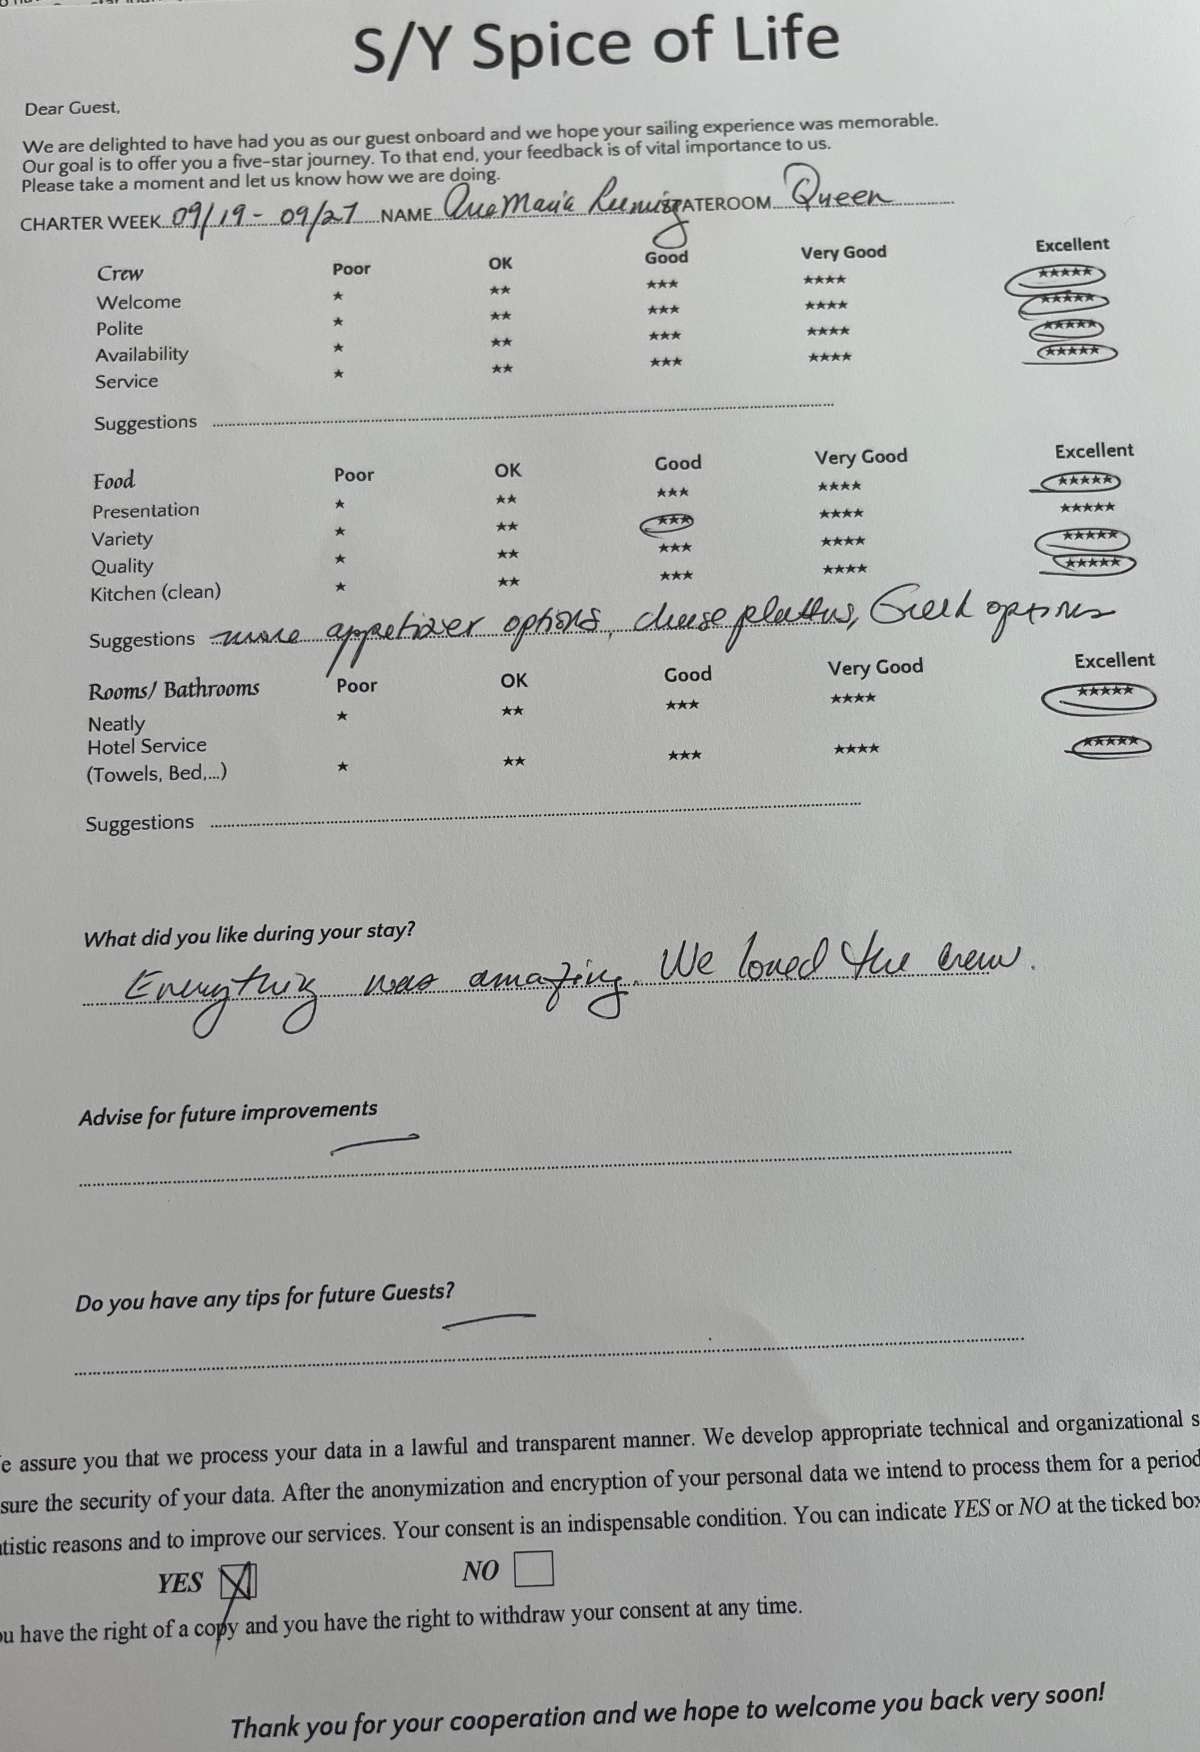 S/Y Spice of Life
Dear Guest,
We are delighted to have had you as our guest onboard and we hope your sailing experience was memorable.
Our goal is to offer you a five-star journey. To that end, your feedback is of vital importance to us.
Please take a moment and let us know how we are doing.
CHARTER WEEK 09/19 - 09/27 NAME Ana Maria STATEROOM Queen
Crew Poor OK Good Very Good Excellent
Welcome ★ ★★ ★★★ ★★★★ ★★★★★
Polite ★ ★★ ★★★ ★★★★ ★★★★★
Availability ★ ★★ ★★★ ★★★★ ★★★★★
Service ★ ★★ ★★★ ★★★★ ★★★★★
Suggestions
Food Poor OK Good Very Good Excellent
Presentation ★ ★★ ★★★ ★★★★ ★★★★★
Variety ★ ★★ ★★★ ★★★★ ★★★★★
Quality ★ ★★ ★★★ ★★★★ ★★★★★
Kitchen (clean) ★ ★★ ★★★ ★★★★ ★★★★★
Suggestions more appetizer options, cheese platters, Greek options
Rooms/ Bathrooms Poor OK Good Very Good Excellent
Neatly ★ ★★ ★★★ ★★★★ ★★★★★
Hotel Service
(Towels, Bed,...) ★ ★★ ★★★ ★★★★ ★★★★★
Suggestions
What did you like during your stay?
Everything was amazing. We loved the crew.
Advise for future improvements
Do you have any tips for future Guests?
e assure you that we process your data in a lawful and transparent manner. We develop appropriate technical and organizational s
sure the security of your data. After the anonymization and encryption of your personal data we intend to process them for a period
tistic reasons and to improve our services. Your consent is an indispensable condition. You can indicate YES or NO at the ticked box
YES X NO
ou have the right of a copy and you have the right to withdraw your consent at any time.
Thank you for your cooperation and we hope to welcome you back very soon!